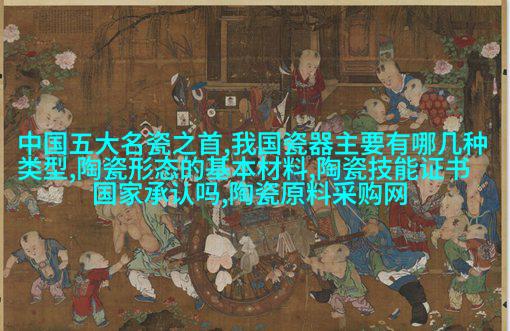 中国五大名瓷之首,我国瓷器主要有哪几种
类型,陶瓷形态的基本材料,陶瓷技能证书
国家承认吗,陶瓷原料采购网